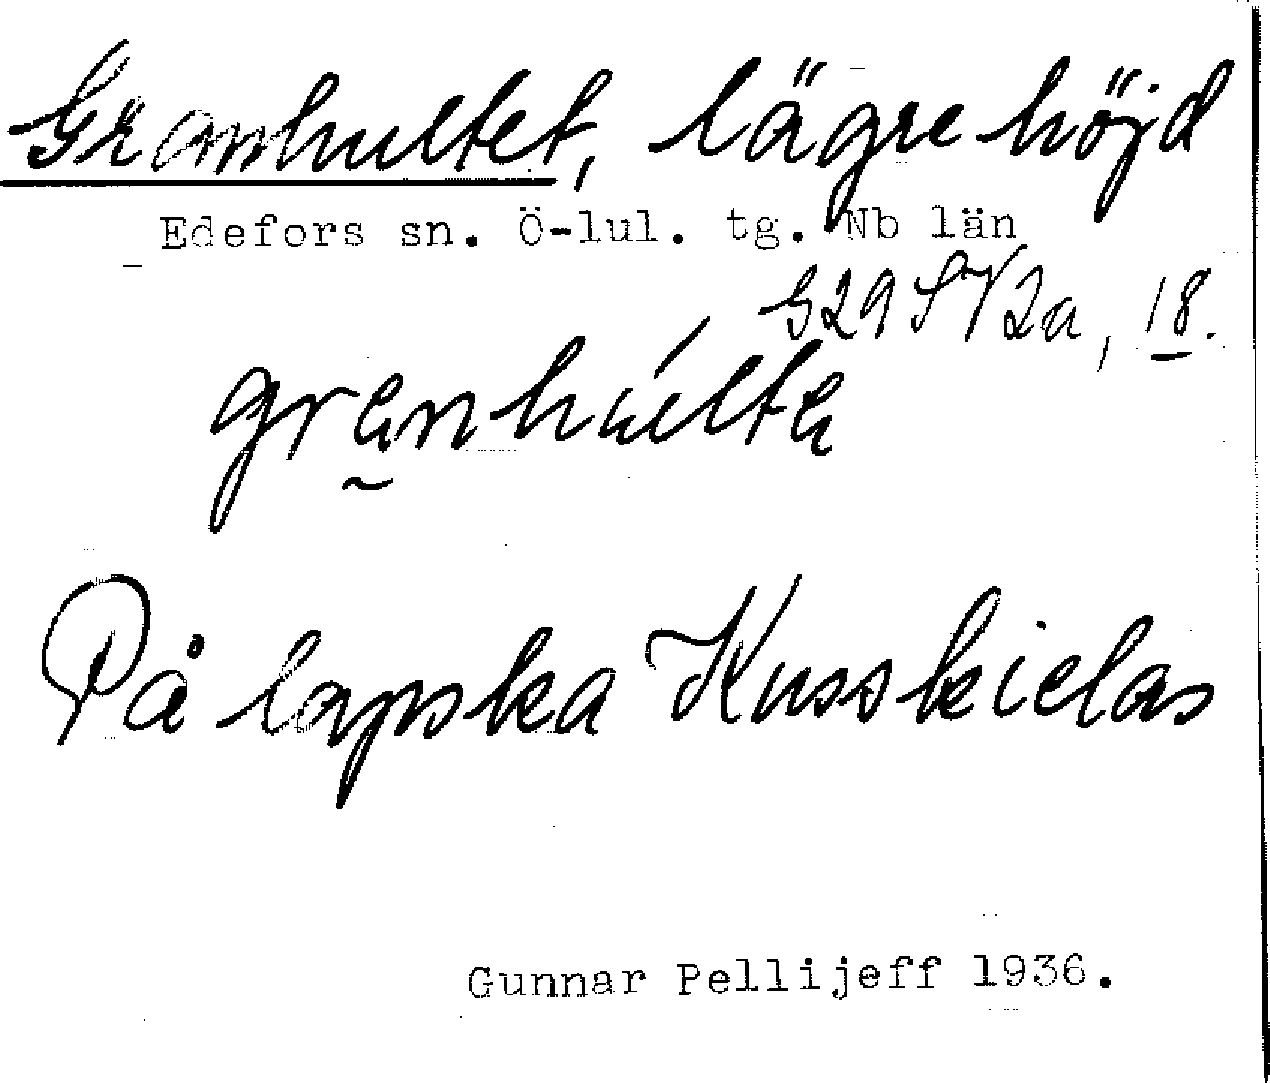 Granhultet, lägre höjd
Edefors sn. Ö-lul. tg. Nb län
G29 SV2a, 18.
granhúlta
På lapska Kusskielas
Gunnar Pellijeff 1936.